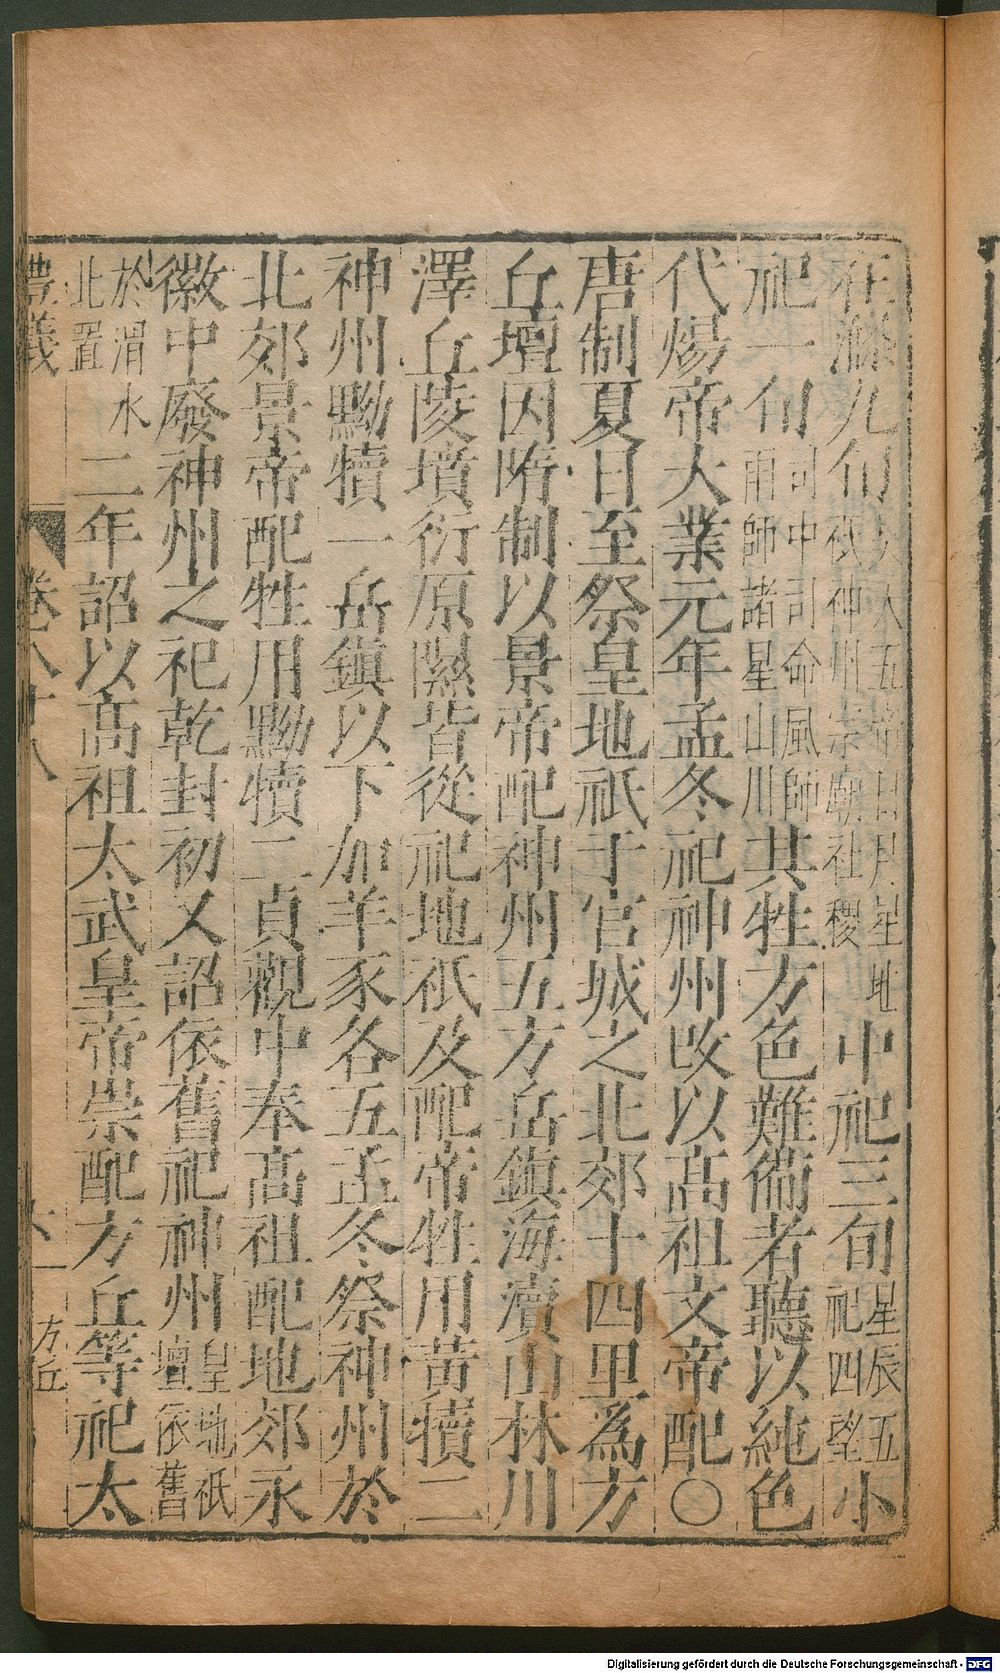 在滌九旬大大五帝日月星地祇神州宗廟社稷中祀三旬星辰五祀四望小
祀一旬司中司命風師雨師諸星山川其牲方色難備者聽以純色
代煬帝大業元年孟冬祀神州改以高祖文帝配〇
唐制夏日至祭皇地祇于宮城之北郊十四里為方
丘壇因隋制以景帝配神州五方岳鎮海瀆山林川
澤丘陵墳衍原隰皆從祀地祇及配帝牲用黃犢二
神州黝犢一岳鎮以下加羊豕各五孟冬祭神州於
北郊景帝配牲用黝犢二貞觀中奉高祖配地郊永
徽中廢神州之祀乾封初又詔依舊祀神州皇地祇壇依舊
於渭水北置二年詔以高祖太武皇帝崇配方丘等祀太
豊義 卷八十八 方丘
Digitalisierung gefördert durch die Deutsche Forschungsgemeinschaft - DFG